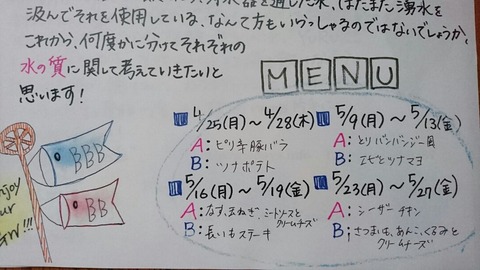 汲んでそれを使用している、なんて方もいらっしゃるのではないでしょうか。
これから、何度かに分けてそれぞれの
水の質に関して考えていきたいと
思います!
MENU
4/25(月)～4/28(木)
A: ピリ辛豚バラ
B: ツナポテト
5/9(月)～5/13(金)
A: とりバンバンジー風
B: エビとツナマヨ
5/16(月)～5/19(金)
A: なす、玉ねぎ、ミートソースと
クリームチーズ
B: 長いもステーキ
5/23(月)～5/27(金)
A: シーザーチキン
B; さつまいも、あんこ、くるみと
クリームチーズ
BBB
BB
njoy
ur
GW!!!